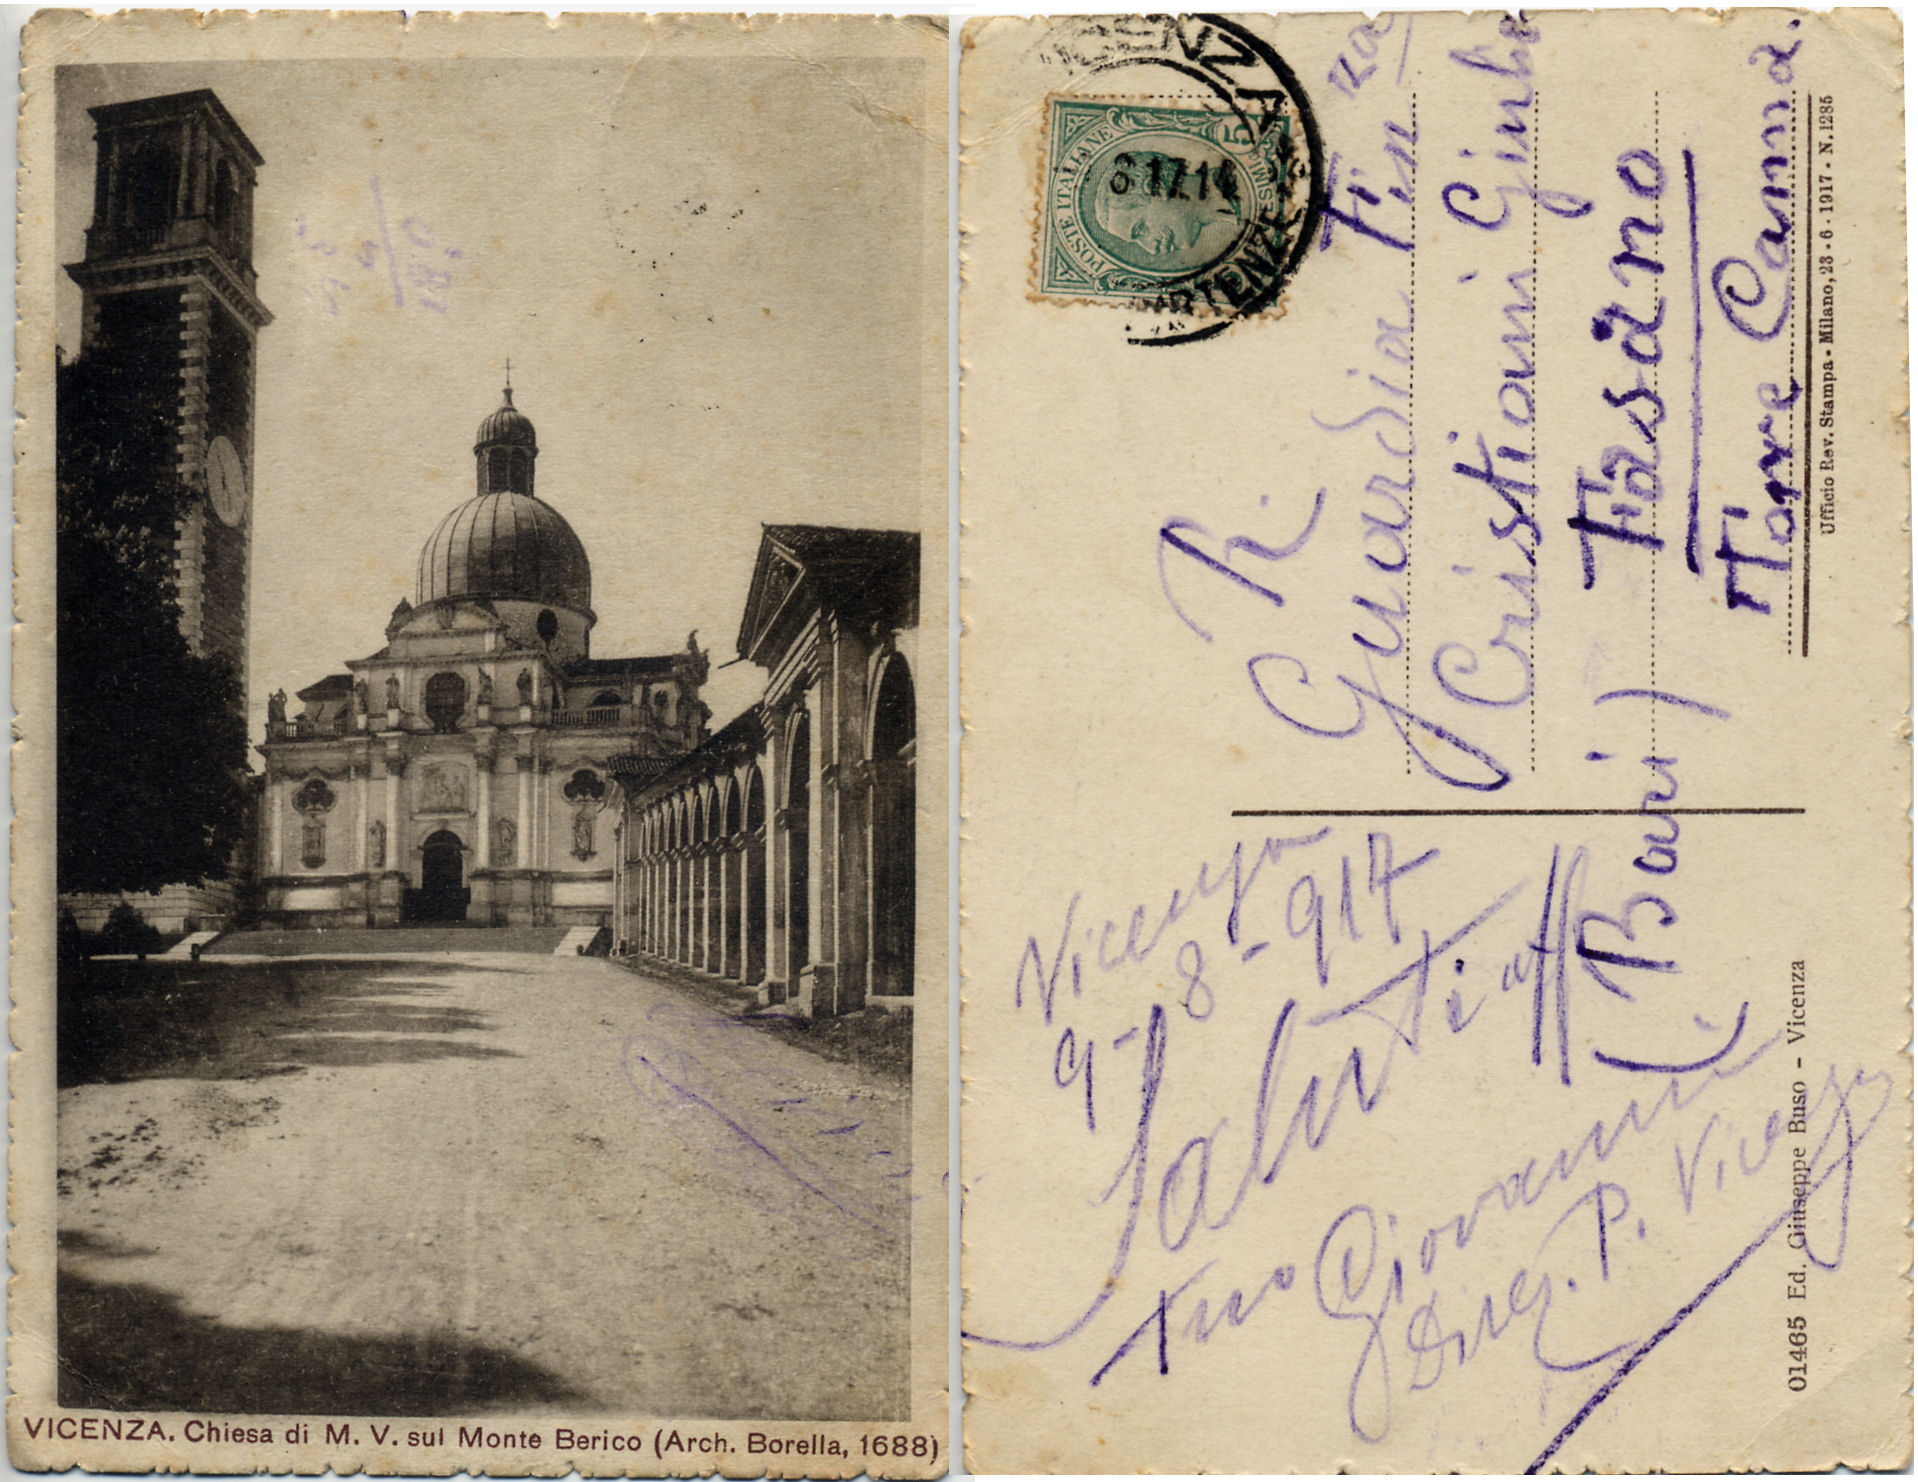 VICENZA. Chiesa di M. V. sul Monte Berico (Arch. Borella, 1688)
VICENZA
POSTE ITALIANE
5
8·17.14
Vicenza
9-8-917
Saluti aff
tuo Giovanni
P. Vicenza
R.
Guardia Finanza
Cristiani
Fasano
(Bari)
Torre Canna.
Ufficio Rev. Stampa - Milano, 23 - 6 - 1917 - N. 1285
01465 Ed. Giuseppe Buso - Vicenza